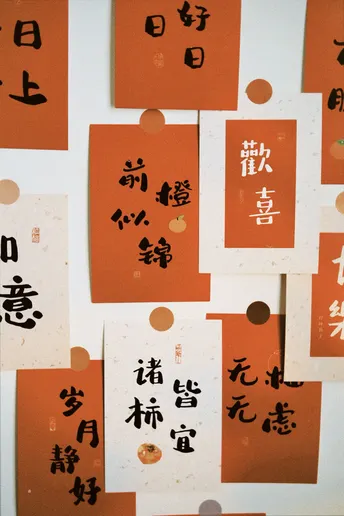 日上
日
好日
前橙
似锦
歡喜
意
诸柿
皆宜
无无
虑
岁月
静好